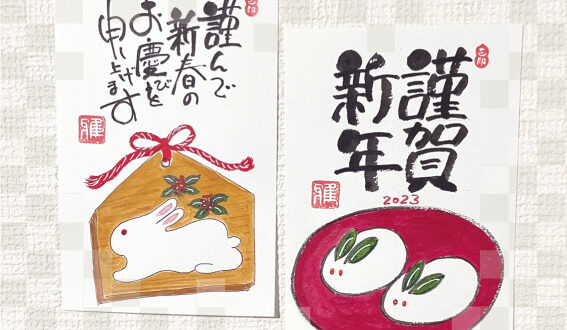 謹んで
新春の
お慶びを
申し上げます
雅
謹賀
新年
雅
2023